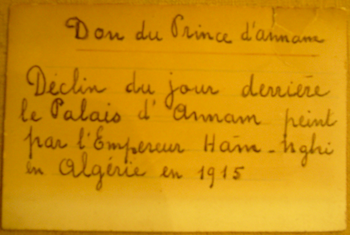 Don du Prince d'Annam
Déclin du jour derrière
le Palais d'Annam peint
par l'Empereur Hâm-Nghi
en Algérie en 1915